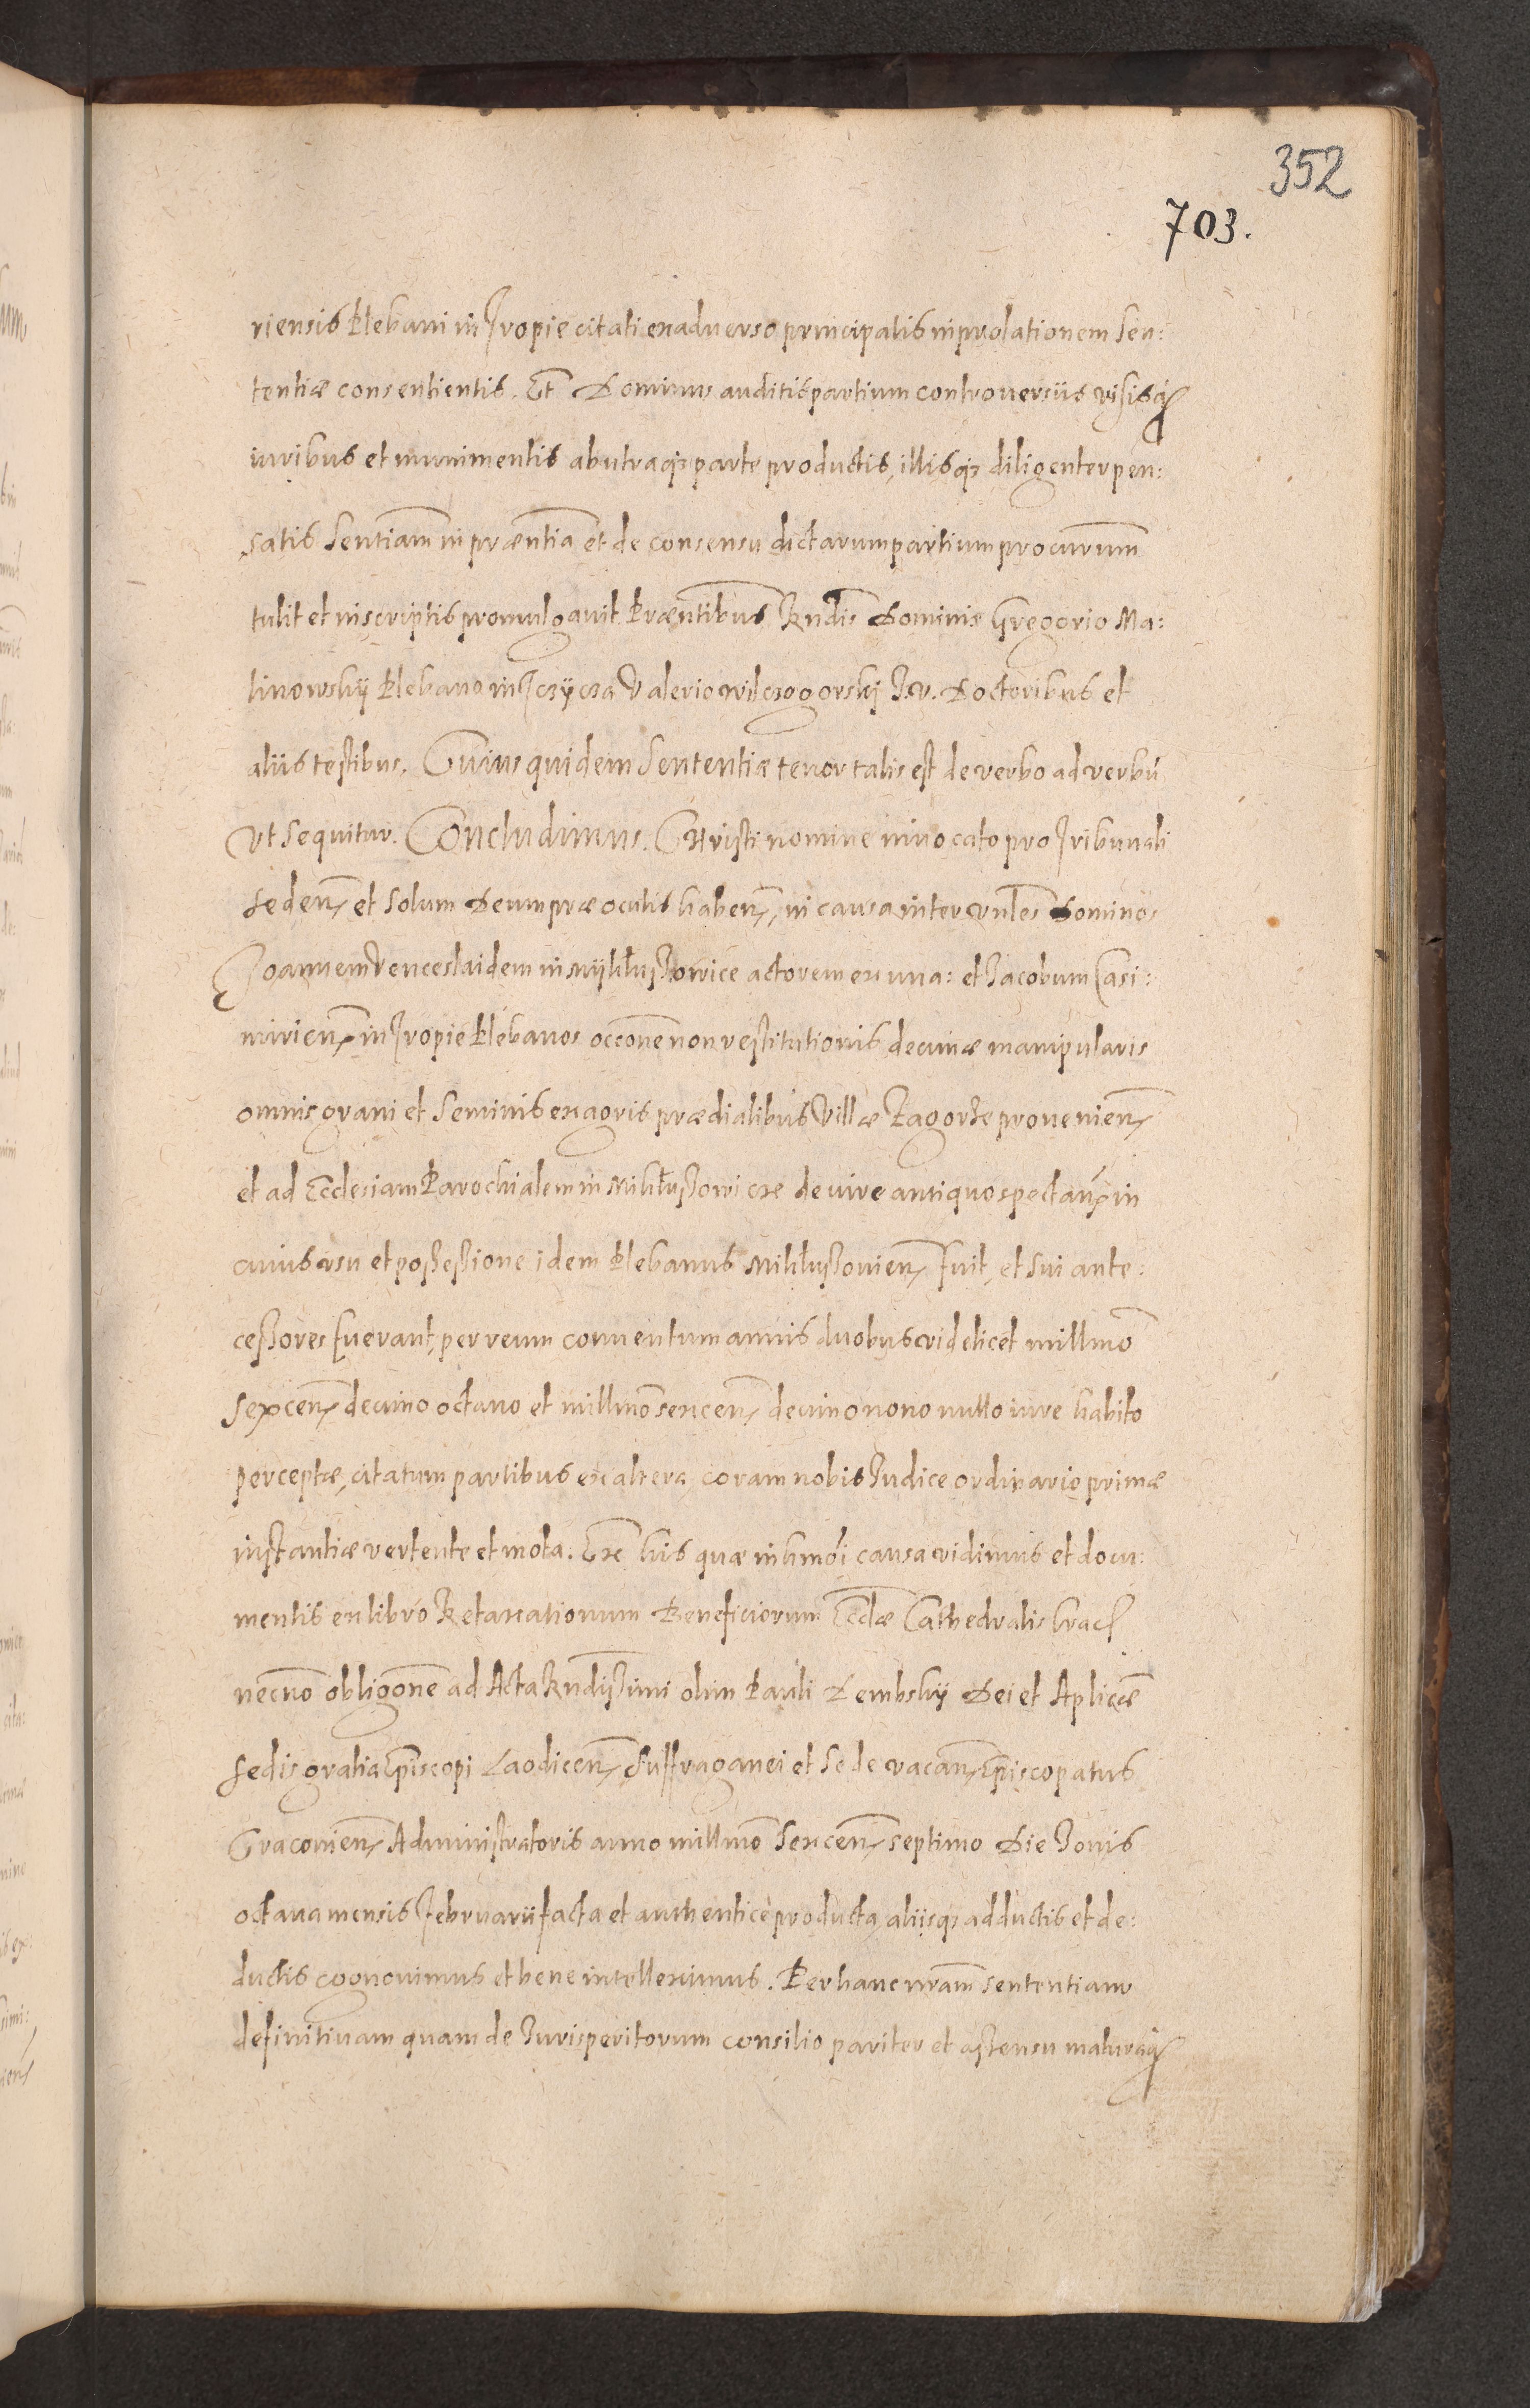 352
703.
riensis Plebani in Tropie citati ex adverso principalis in prolationem Sen:
tentiæ consentientis. Et Dominus auditis partium controversiis visisq
iuribus et munimentis ab utraq parte productis, illisq diligenter pen:
satis Sentiam in præntia et de consensu dictarum partium procurum
tulit et in scriptis promulgavit Præntibus Rndis Dominis Gregorio Ma:
linowskÿ Plebano in Valerio Wilczogorskj I.V. Doctoribus et
aliis testibus. Cuius quidem Sententiæ tenor talis est de verbo ad verbu
Vt Sequitur. Concludimus. Christi nomine invocato pro Tribunali
Seden et Solum Deum præ oculis haben, in causa inter Vnles Dominos
Joannem Venceslaidem in Mÿkłuszowice actorem ex una: et Jacobum Casi:
mirien in Tropie Plebanos occone non restitutionis decimæ manipularis
omnis grani et Seminis ex agris prædialibus Villæ Zagorze provenien
et ad Ecclesiam Parochialem in Mikłuszowicze de iure antiquo spectan in
cuius usu et possessione idem Plebanus Mikłuszovien fuit, et Sui ante:
cessores fuerant, per reum conventum annis duobus videlicet millmo
Sexcen decimo octavo et millmo sexcen decimo nono nullo iure habito
perceptæ, citatum partibus ex altera, coram nobis Iudice ordinario primæ
instantiæ vertente et mota. Ex his quæ in hmoi causa vidimus et docu:
mentis ex libro Retaxationum Beneficiorum Ecclæ Cathedralis Crac
necno obligone ad Acta Rndissimi olim Pauli Dembskÿ Dei et Aplicæ
Sedis gratia Episcopi Laodicen Suffraganei et Sede vacan Episcopatus
Cracovien Administratoris anno millmo Sexcen septimo Die Iovis
octava mensis Februarii facta et authentice producta, aliisq adductis et de:
ductis cognovimus et bene intelleximus. Per hanc nram sententiam
definitivam quam de Iurisperitorum consilio pariter et assensu maturaq